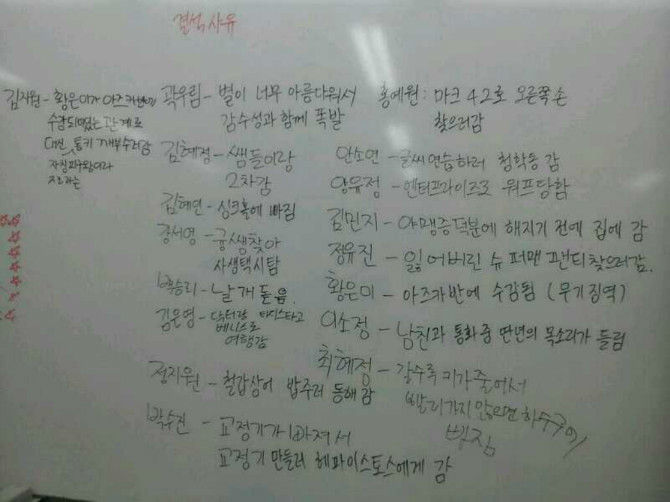 결석사유
김지원 - 황은미가 아즈카반에
수감되어있는 관계로
대신
자칭
곽우림 - 별이 너무 아름다워서
감수성과 함께 폭발
김혜정 - 쌤들이랑
2차감
김혜연 - 싱크홀에 빠짐
강서영 - 궁쌤찾아
사생택시탐
박승리 - 날개 돋음
김은영 - 닥터랑 타디스타고
베니스로
여행감
정지원 - 철갑상어 밥주러 동해 감
박수진 - 교정기가 빠져서
교정기 만들러 헤파이스토스에게 감
홍예원 : 마크 42호 오른쪽 손
찾으러감
안소연 - 글씨연습하러 청학동 감
양유정 - 엔터프라이즈로 워프당함
김민지 - 야맹증덕분에 해지기 전에 집에 감
정유진 - 잃어버린 슈퍼맨 팬티찾으러감.
황은미 - 아즈카반에 수감됨 (무기징역)
이소정 - 남친과 통화중 딴년의 목소리가 들림
최혜정 - 갈수록 키가줄어서
빨리가지 않으면 하수구에
빠짐